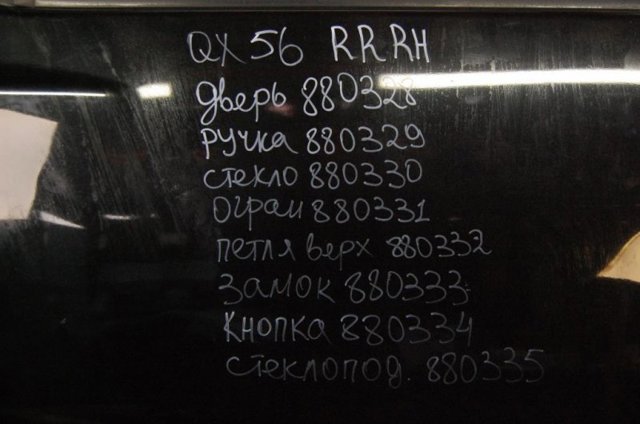 QX 56 RRRH
дверь 880328
ручка 880329
стекло 880330
Огран 880331
петля верх 880332
замок 880333
кнопка 880334
стеклопод. 880335